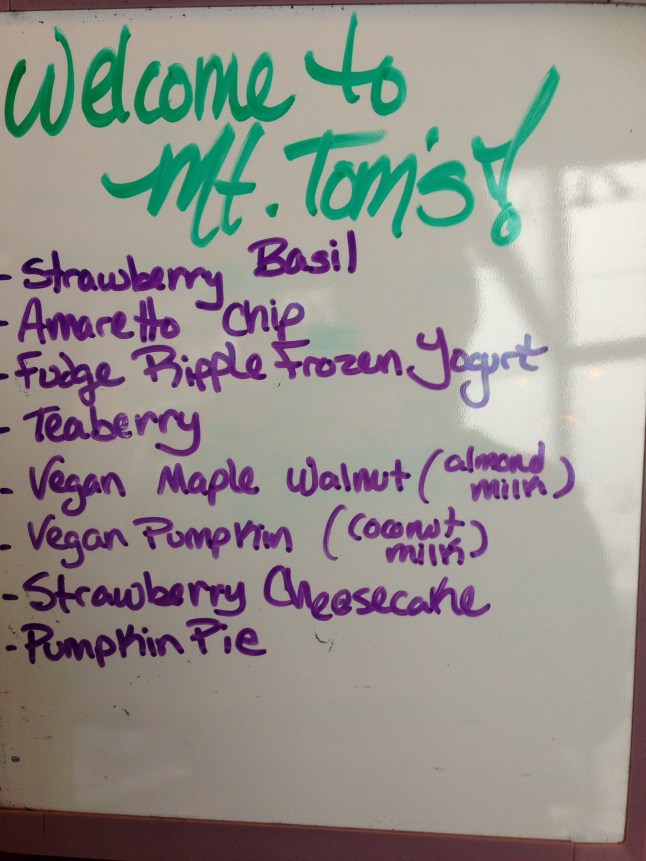 Welcome to
Mt. Tom's!
- Strawberry Basil
- Amaretto Chip
- Fudge Ripple Frozen Yogurt
- Teaberry
- Vegan Maple Walnut (almond milk)
- Vegan Pumpkin (coconut milk)
- Strawberry Cheesecake
- Pumpkin Pie